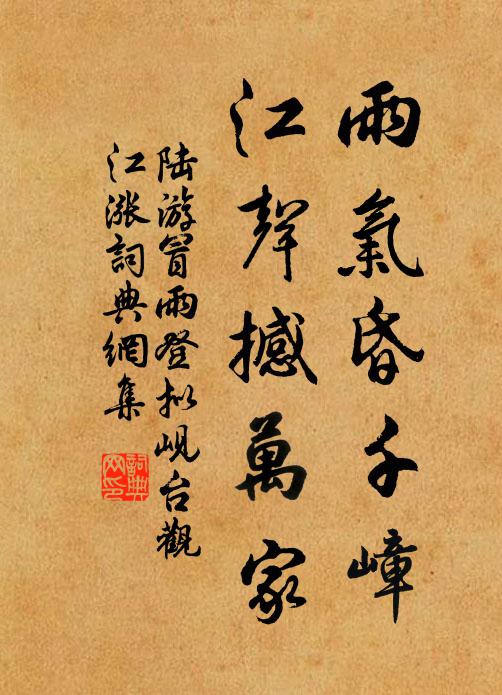 雨氣昏千嶂
江聲撼萬家
陆游冒雨登拟岘台觀
江漲詞典網集
詞典
网印